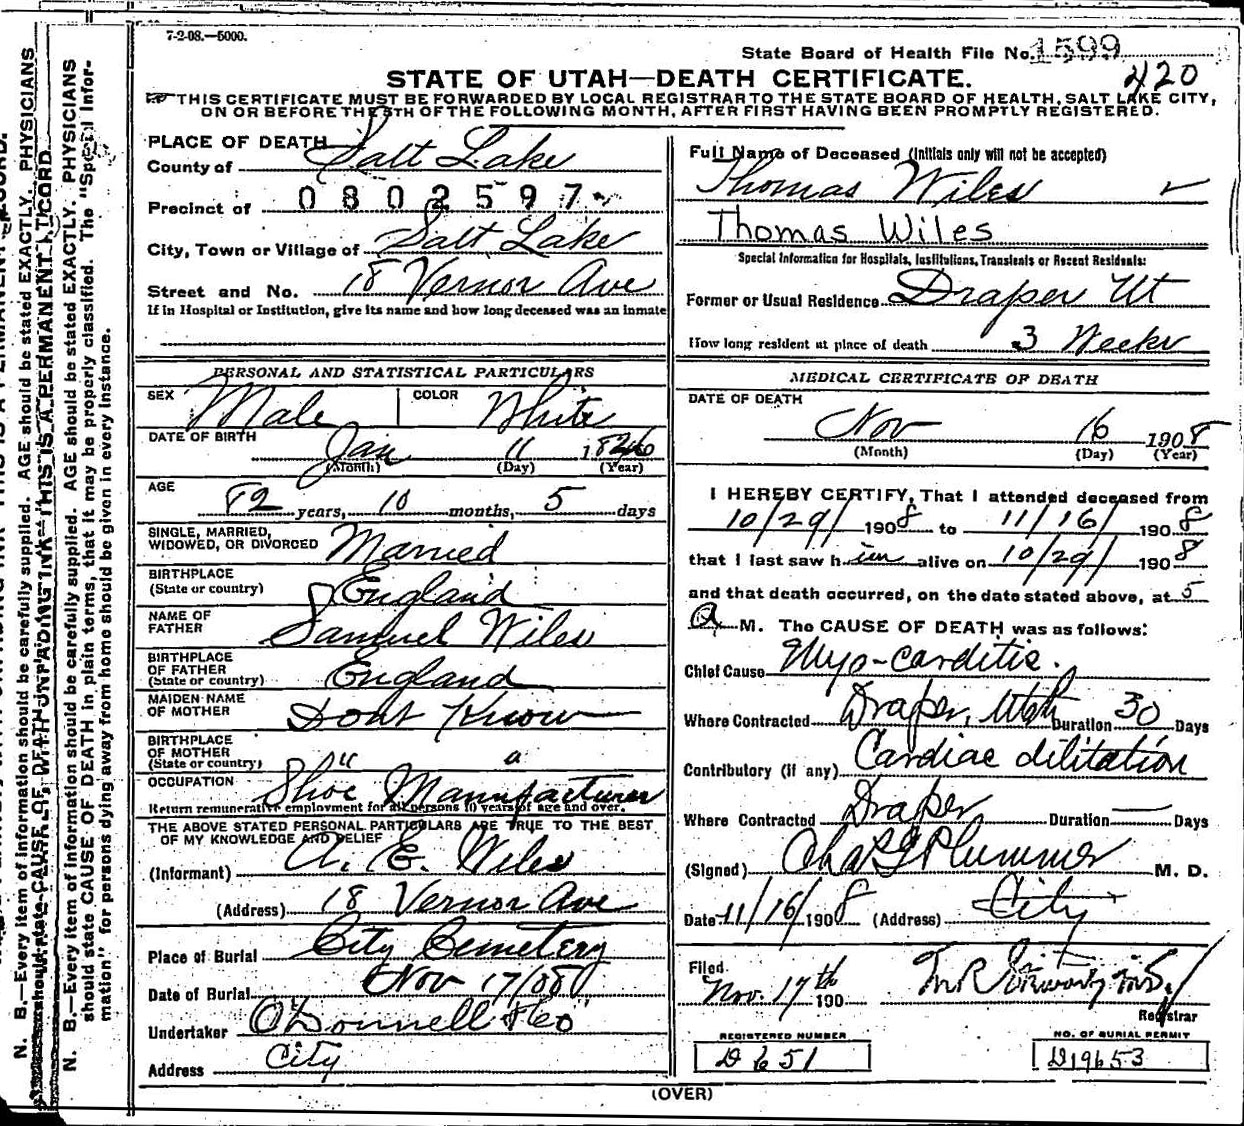 7-2-08.—5000.
State Board of Health File No. 1599
420
STATE OF UTAH—DEATH CERTIFICATE.
THIS CERTIFICATE MUST BE FORWARDED BY LOCAL REGISTRAR TO THE STATE BOARD OF HEALTH, SALT LAKE CITY,
ON OR BEFORE THE 5TH OF THE FOLLOWING MONTH, AFTER FIRST HAVING BEEN PROMPTLY REGISTERED.
PLACE OF DEATH
County of Salt Lake
Precinct of 0802597
City, Town or Village of Salt Lake
Street and No. 18 Vernor Ave
If in Hospital or Institution, give its name and how long deceased was an inmate
PERSONAL AND STATISTICAL PARTICULARS
SEX Male COLOR White
DATE OF BIRTH Jan 11 1826
(Month) (Day) (Year)
AGE 82 years, 10 months, 5 days
SINGLE, MARRIED,
WIDOWED, OR DIVORCED Married
BIRTHPLACE
(State or country) England
NAME OF
FATHER Samuel Wiles
BIRTHPLACE
OF FATHER
(State or country) England
MAIDEN NAME
OF MOTHER Dont Know
BIRTHPLACE
OF MOTHER
(State or country) " "
OCCUPATION Shoe Manufacturer
Return remunerative employment for all persons 10 years of age and over.
THE ABOVE STATED PERSONAL PARTICULARS ARE TRUE TO THE BEST
OF MY KNOWLEDGE AND BELIEF
(Informant) A. E. Wiles
(Address) 18 Vernor Ave
Place of Burial City Cemetery
Date of Burial Nov 17/08
Undertaker O'Donnell & Co
Address City
Full Name of Deceased (Initials only will not be accepted)
Thomas Wiles
Thomas Wiles
Special Information for Hospitals, Institutions, Transients or Recent Residents:
Former or Usual Residence Draper Ut
How long resident at place of death 3 Weeks
MEDICAL CERTIFICATE OF DEATH
DATE OF DEATH
Nov 16 1908
(Month) (Day) (Year)
I HEREBY CERTIFY, That I attended deceased from
10/29/ 1908 to 11/16/ 1908
that I last saw him alive on 10/29/ 1908
and that death occurred, on the date stated above, at 5
A. M. The CAUSE OF DEATH was as follows:
Chief Cause Myo-carditis.
Where Contracted Draper, Utah Duration 30 Days
Contributory (if any) Cardiac dilitation
Where Contracted Draper Duration — Days
(Signed) Chas G Plummer M. D.
Date 11/16/ 1908 (Address) City
Filed
Nov. 17th 190
Registrar
REGISTERED NUMBER
D 651
NO. OF BURIAL PERMIT
D19653
(OVER)
N. B.—Every item of information should be carefully supplied. AGE should be stated EXACTLY. PHYSICIANS
should state CAUSE OF DEATH in plain terms, that it may be properly classified. The "Special Infor-
mation" for persons dying away from home should be given in every instance.
N. B.—Every item of information should be carefully supplied. AGE should be stated EXACTLY. PHYSICIANS